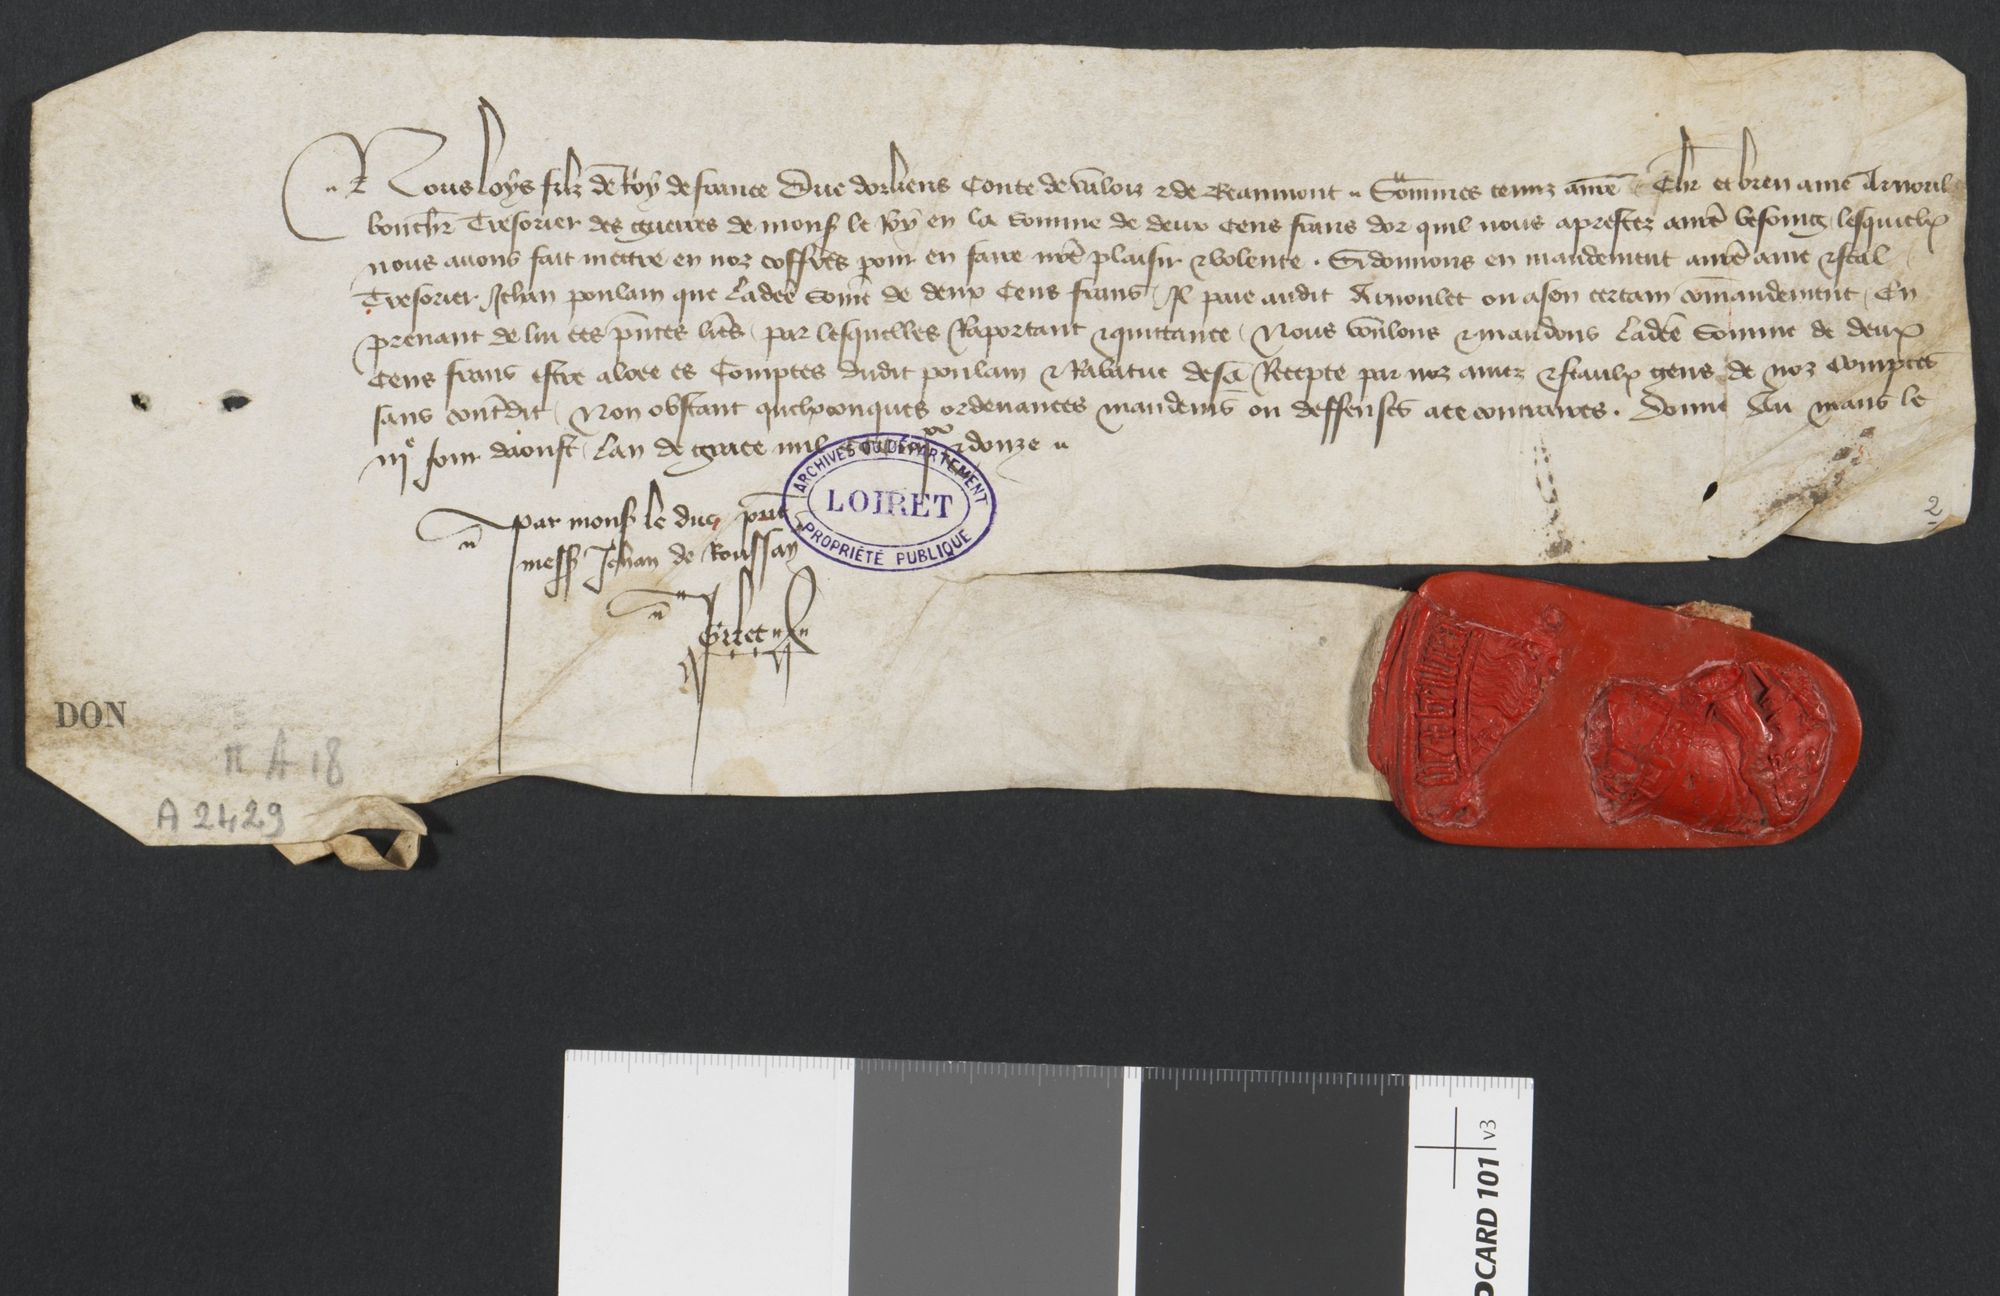 Nous loys filz de roy de france Duc dorliens Conte de valois & de Beaumont Sommes tenuz a nre Chr et bien ame Arnoul
bouchr Tresorier des guerres de mons le Roy en la somme de deux cens frans dor quil nous a prestez a nre besoing lesquielx
nous avons fait mettre en noz coffres pour en faire nre plaisir & volente . Si donnons en mandement a nre ame & feal
Tresorier Jehan poulain que ladce some de deux cens frans Il paie audit Arnoulet ou a son certain comandement En
prenant de lui ces pntes lres par lesquelles Raportant & quittance Nous voulons & mandons ladce somme de deux
Cens frans estre aloee es Comptes dudit poulain & Rabatue de sa Recepte par noz amez & feaulx gens de noz comptes
sans contdit Non obstant quelxconques ordenances mandems ou deffenses a ce contraires . Donne Au mans le
iije jour daoust Lan de grace mil & douze
par mons le duc pnt
mess Jehan de Roussay
ARCHIVES DU DÉPARTEMENT
LOIRET
PROPRIÉTÉ PUBLIQUE
2
DON
II A 18
A 2429
OCARD 101 v3